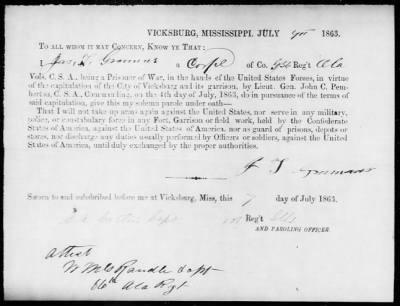 VICKSBURG, MISSISSIPPI, JULY 1863.
TO ALL WHOM IT MAY CONCERN, KNOW YE THAT:
I a Corpl of Co. Reg't Ala
Vols. C. S. A., being a Prisoner of War, in the hands of the United States Forces, in virtue
of the capitulation of the City of Vicksburg and its garrison, by Lieut. Gen. John C. Pem-
berton, C. S. A., Commanding, on the 4th day of July, 1863, do in pursuance of the terms
of said capitulation, give this my solemn parole under oath—
That I will not take up arms again against the United States, nor serve in any military,
police, or constabulary force in any Fort, Garrison or field work, held by the Confederate
States of America, against the United States of America, nor as guard of prisons, depots or
stores, nor discharge any duties usually performed by Officers or soldiers, against the United
States of America, until duly exchanged by the proper authorities.
J T
Sworn to and subscribed before me at Vicksburg, Miss, this 7 day of July 1863.
Reg't Ills
AND PAROLING OFFICER.
Attest
Randle Capt
Ala Rgt